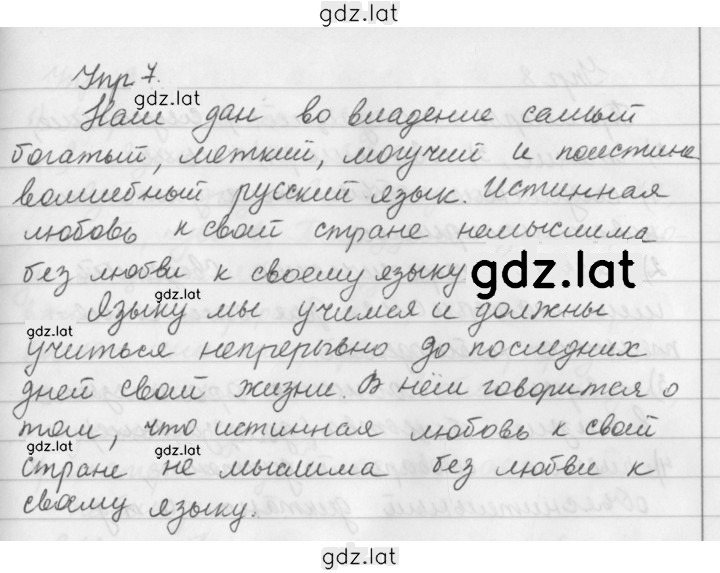 gdz.lat
Упр 7.
gdz.lat
Нам дан во владение самый
богатый, меткий, могучий и поистине
волшебный русский язык. Истинная
любовь к свой стране немыслима
без любви к своему языку gdz.lat
Языку мы учимся и должны
gdz.lat
учиться непрерывно до последних
дней свой жизни. В нём говорится о
том, что истинная любовь к свой
gdz.lat gdz.lat
стране не мыслима без любви к
своему языку.
gdz.lat